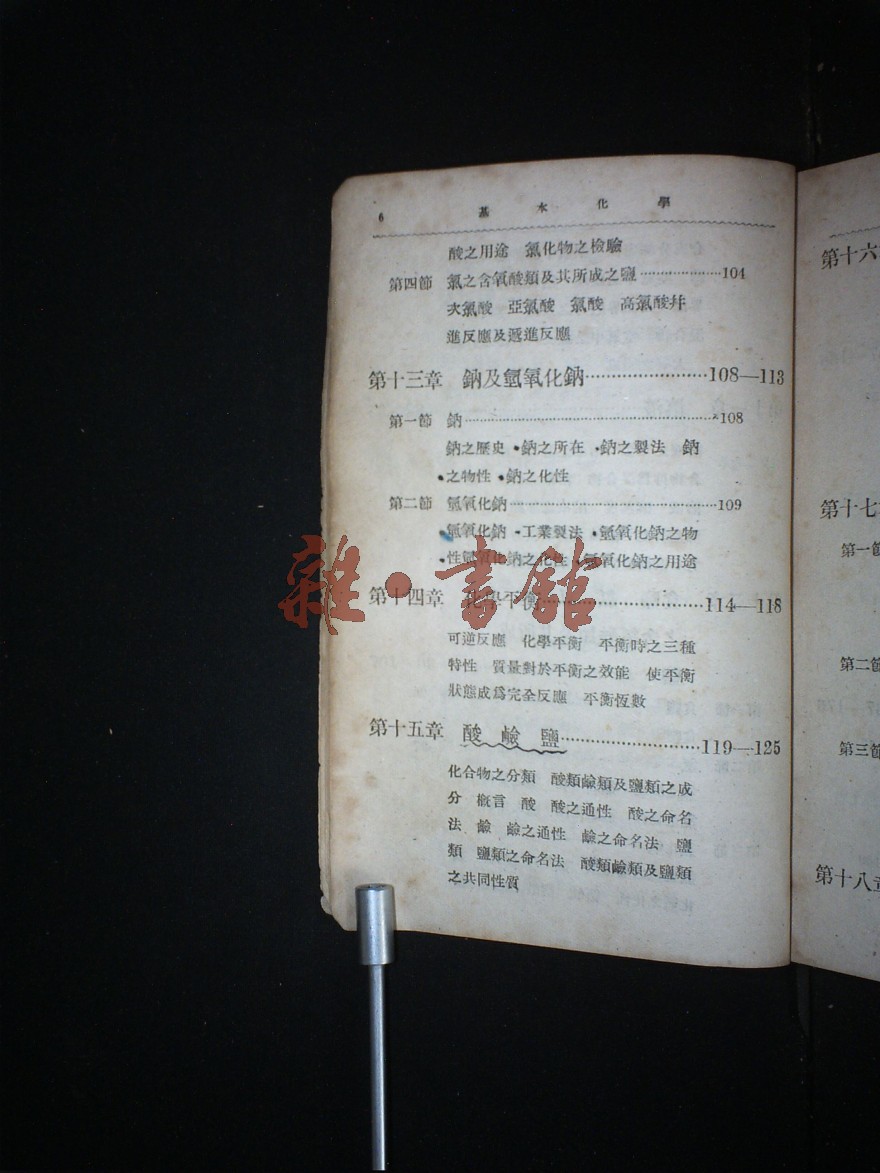 6 基本化學
酸之用途 氯化物之檢驗
第四節 氯之含氧酸類及其所成之鹽…………………104
次氯酸 亞氯酸 氯酸 高氯酸幷
進反應及遞進反應
第十三章 鈉及氫氧化鈉……………………108—113
第一節 鈉……………………………………………108
鈉之歷史 •鈉之所在 •鈉之製法 鈉
•之物性 •鈉之化性
第二節 氫氧化鈉……………………………………109
氫氧化鈉 •工業製法 •氫氧化鈉之物
•性氫氧化鈉之化性 氫氧化鈉之用途
第十四章 化學平衡…………………………114—118
可逆反應 化學平衡 平衡時之三種
特性 質量對於平衡之效能 使平衡
狀態成爲完全反應 平衡恆數
第十五章 酸 鹼 鹽………………………119—125
化合物之分類 酸類鹼類及鹽類之成
分 槪言 酸 酸之通性 酸之命名
法 鹼 鹼之通性 鹼之命名法 鹽
類 鹽類之命名法 酸類鹼類及鹽類
之共同性質
雜·書館
第十六
第十七
第一節
第二節
第三節
第十八章